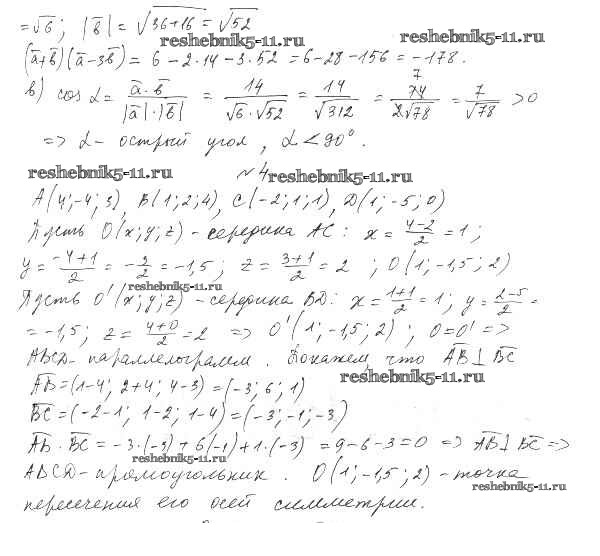 = √6; |b̄| = √36+16 = √52
reshebnik5-11.ru
(ā+b̄)(ā-3b̄) = 6 - 2·14 - 3·52 = 6-28-156 = -178.
в) cos α = ā·b̄ / |ā|·|b̄| = 14/√6·√52 = 14/√312 = 14/2√78 7 = 7/√78 > 0
=> α - острый угол, α < 90°.
reshebnik5-11.ru № 4 reshebnik5-11.ru
A(4;-4;3), B(1;2;4), C(-2;1;1), D(1;-5;0)
Пусть O(x;y;z) - середина AC: x = 4-2/2 = 1;
y = -4+1/2 = -3/2 = -1,5; z = 3+1/2 = 2; O(1;-1,5;2)
reshebnik5-11.ru
Пусть O'(x;y;z) - середина BD: x = 1+1/2 = 1; y = 2-5/2 =
= -1,5; z = 4+0/2 = 2 => O'(1;-1,5;2); O=O' =>
ABCD - параллелограмм. Докажем, что AB ⊥ BC
reshebnik5-11.ru
AB = (1-4; 2+4; 4-3) = (-3; 6; 1)
BC = (-2-1; 1-2; 1-4) = (-3; -1; -3)
AB · BC = -3·(-3) + 6(-1) + 1·(-3) = 9-6-3 = 0 => AB ⊥ BC =>
reshebnik5-11.ru
ABCD - прямоугольник. O(1;-1,5;2) - точка
reshebnik5-11.ru
пересечения его осей симметрии.